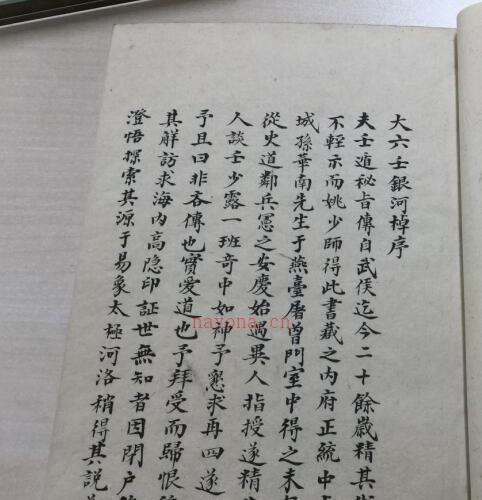 大六壬銀河棹序
夫壬遁秘旨傳自武侯迄今二十餘歲精其
不輕示而姚少師得此書藏之內府正統中
城孫華南先生于燕臺屠曾門室中得之未
從史道鄰兵憲之安慶始遇異人指授遂精
人談壬少露一班奇中如神予懇求再四遂
予且曰非吝傳也寶愛道也予拜受而歸恨
其解訪求海內高隐印証世無知者因閉户
澄悟探索其源于易象太極河洛稍得其説
nayona.cn